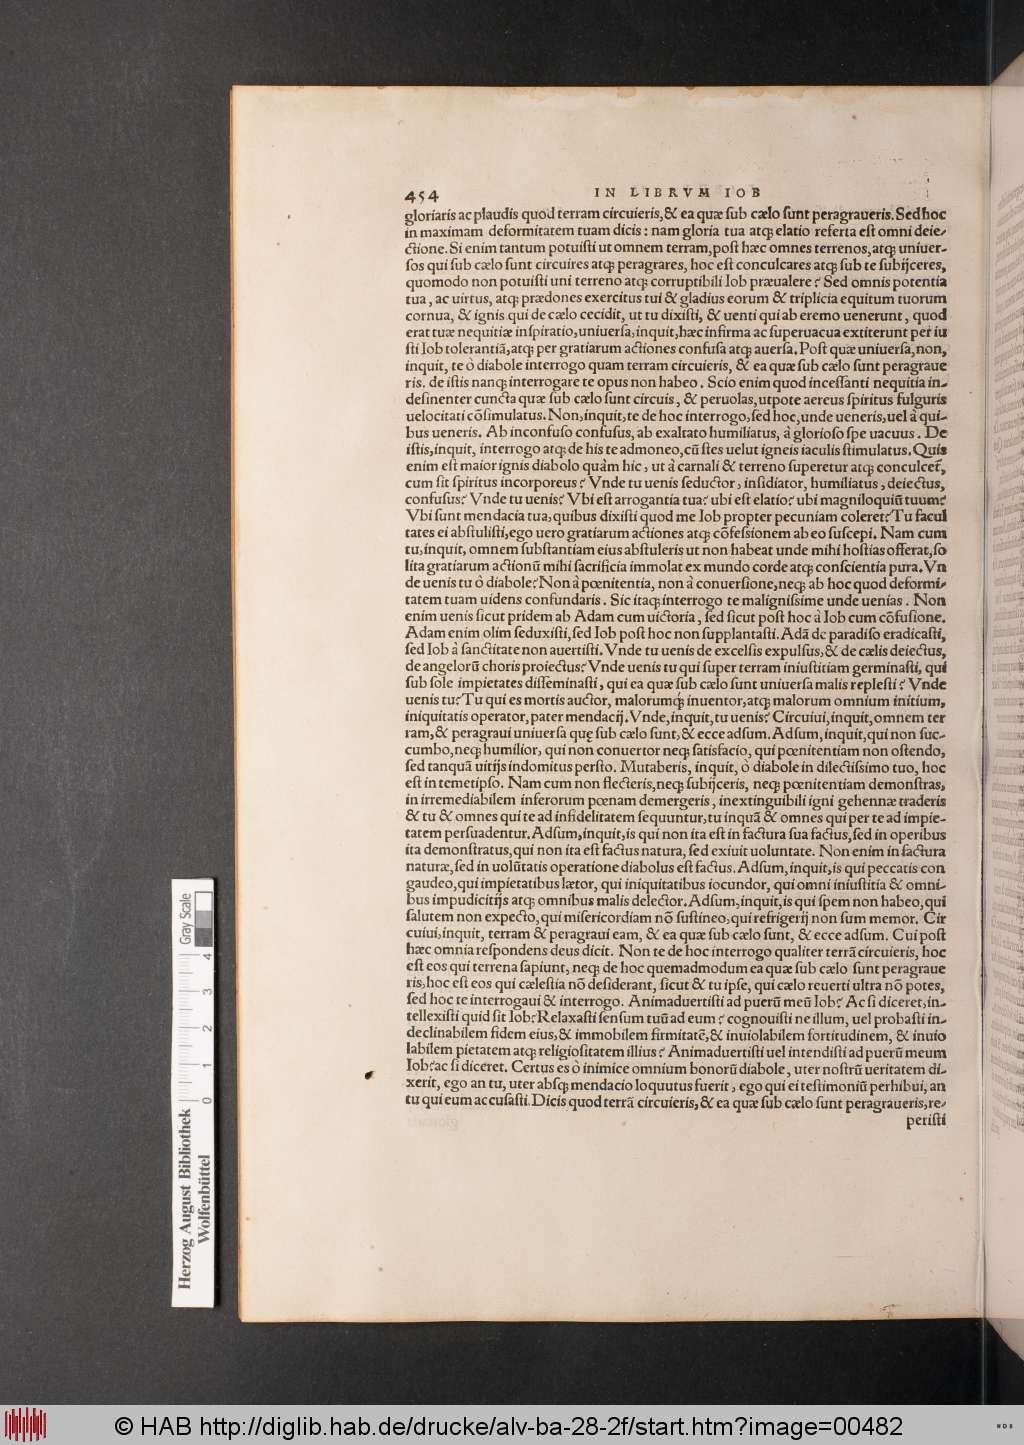 454 IN LIBRVM IOB
gloriaris ac plaudis quod terram circuieris, & ea quæ sub cælo sunt peragraueris. Sed hoc
in maximam deformitatem tuam dicis: nam gloria tua atq; elatio referta est omni deie-
ctione. Si enim tantum potuisti ut omnem terram, post hæc omnes terrenos, atq; uniuer-
sos qui sub cælo sunt circuires atq; peragrares, hoc est conculcares atq; sub te subijceres,
quomodo non potuisti uni terreno atq; corruptibili Iob præualere? Sed omnis potentia
tua, ac uirtus, atq; prædones exercitus tui & gladius eorum & triplicia equitum tuorum
cornua, & ignis qui de cælo cecidit, ut tu dixisti, & uenti qui ab eremo uenerunt, quod
erat tuæ nequitiæ inspiratio, uniuersa, inquit, hæc infirma ac superuacua extiterunt per iu
sti Iob tolerantiã, atq; per gratiarum actiones confusa atq; auersa. Post quæ uniuersa, non,
inquit, te ò diabole interrogo quam terram circuieris, & ea quæ sub cælo sunt peragraue
ris. de istis nanq; interrogare te opus non habeo. Scio enim quod incessanti nequitia in-
desinenter cuncta quæ sub cælo sunt circuis, & peruolas, utpote aereus spiritus fulguris
uelocitati cõsimulatus. Non, inquit, te de hoc interrogo, sed hoc, unde ueneris, uel à qui-
bus ueneris. Ab inconfuso confusus, ab exaltato humiliatus, à glorioso spe uacuus. De
istis, inquit, interrogo atq; de his te admoneo, cũ stes uelut igneis iaculis stimulatus. Quis
enim est maior ignis diabolo quàm hic, ut à carnali & terreno superetur atq; conculcet̃,
cum sit spiritus incorporeus? Vnde tu uenis seductor, insidiator, humiliatus, deiectus,
confusus? Vnde tu uenis? Vbi est arrogantia tua? ubi est elatio? ubi magniloquiũ tuum?
Vbi sunt mendacia tua, quibus dixisti quod me Iob propter pecuniam coleret? Tu facul
tates ei abstulisti, ego uero gratiarum actiones atq; cõfessionem ab eo suscepi. Nam cum
tu, inquit, omnem substantiam eius abstuleris ut non habeat unde mihi hostias offerat, so
lita gratiarum actionũ mihi sacrificia immolat ex mundo corde atq; conscientia pura. Vn
de uenis tu ò diabole? Non à pœnitentia, non à conuersione, neq; ab hoc quod deformi-
tatem tuam uidens confundaris. Sic itaq; interrogo te malignissime unde uenias. Non
enim uenis sicut pridem ab Adam cum uictoria, sed sicut post hoc à Iob cum cõfusione.
Adam enim olim seduxisti, sed Iob post hoc non supplantasti. Adã de paradiso eradicasti,
sed Iob à sanctitate non auertisti. Vnde tu uenis de excelsis expulsus, & de cælis deiectus,
de angelorũ choris proiectus? Vnde uenis tu qui super terram iniustitiam germinasti, qui
sub sole impietates disseminasti, qui ea quæ sub cælo sunt uniuersa malis replesti? Vnde
uenis tu? Tu qui es mortis auctor, malorumq; inuentor, atq; malorum omnium initium,
iniquitatis operator, pater mendacij. Vnde, inquit, tu uenis? Circuiui, inquit, omnem ter
ram, & peragraui uniuersa quę sub cælo sunt, & ecce adsum. Adsum, inquit, qui non suc-
cumbo, neq; humilior, qui non conuertor neq; satisfacio, qui pœnitentiam non ostendo,
sed tanquã uitijs indomitus persto. Mutaberis, inquit, ò diabole in dilectissimo tuo, hoc
est in temetipso. Nam cum non flecteris, neq; subijceris, neq; pœnitentiam demonstras,
in irremediabilem inferorum pœnam demergeris, inextinguibili igni gehennæ traderis
& tu & omnes qui te ad infidelitatem sequuntur, tu inquã & omnes qui per te ad impie-
tatem persuadentur. Adsum, inquit, is qui non ita est in factura sua factus, sed in operibus
ita demonstratus, qui non ita est factus natura, sed exiuit uoluntate. Non enim in factura
naturæ, sed in uolũtatis operatione diabolus est factus. Adsum, inquit, is qui peccatis con
gaudeo, qui impietatibus lætor, qui iniquitatibus iocundor, qui omni iniustitia & omni-
bus impudicitijs atq; omnibus malis delector. Adsum, inquit, is qui spem non habeo, qui
salutem non expecto, qui misericordiam nõ sustineo, qui refrigerij non sum memor. Cir
cuiui, inquit, terram & peragraui eam, & ea quæ sub cælo sunt, & ecce adsum. Cui post
hæc omnia respondens deus dicit. Non te de hoc interrogo qualiter terrã circuieris, hoc
est eos qui terrena sapiunt, neq; de hoc quemadmodum ea quæ sub cælo sunt peragraue
ris, hoc est eos qui cælestia nõ desiderant, sicut & tu ipse, qui cælo reuerti ultra nõ potes,
sed hoc te interrogaui & interrogo. Animaduertisti ad puerũ meũ Iob? Ac si diceret, in-
tellexisti quid sit Iob? Relaxasti sensum tuũ ad eum? cognouisti ne illum, uel probasti in-
declinabilem fidem eius, & immobilem firmitatẽ, & inuiolabilem fortitudinem, & inuio
labilem pietatem atq; religiositatem illius? Animaduertisti uel intendisti ad puerũ meum
Iob? ac si diceret. Certus es ò inimice omnium bonorũ diabole, uter nostrũ ueritatem di-
xerit, ego an tu, uter absq; mendacio loquutus fuerit, ego qui ei testimoniũ perhibui, an
tu qui eum accusasti. Dicis quod terrã circuieris, & ea quæ sub cælo sunt peragraueris, re-
peristi
Herzog August Bibliothek
Wolfenbüttel
0 1 2 3 4
Gray Scale
© HAB http://diglib.hab.de/drucke/alv-ba-28-2f/start.htm?image=00482